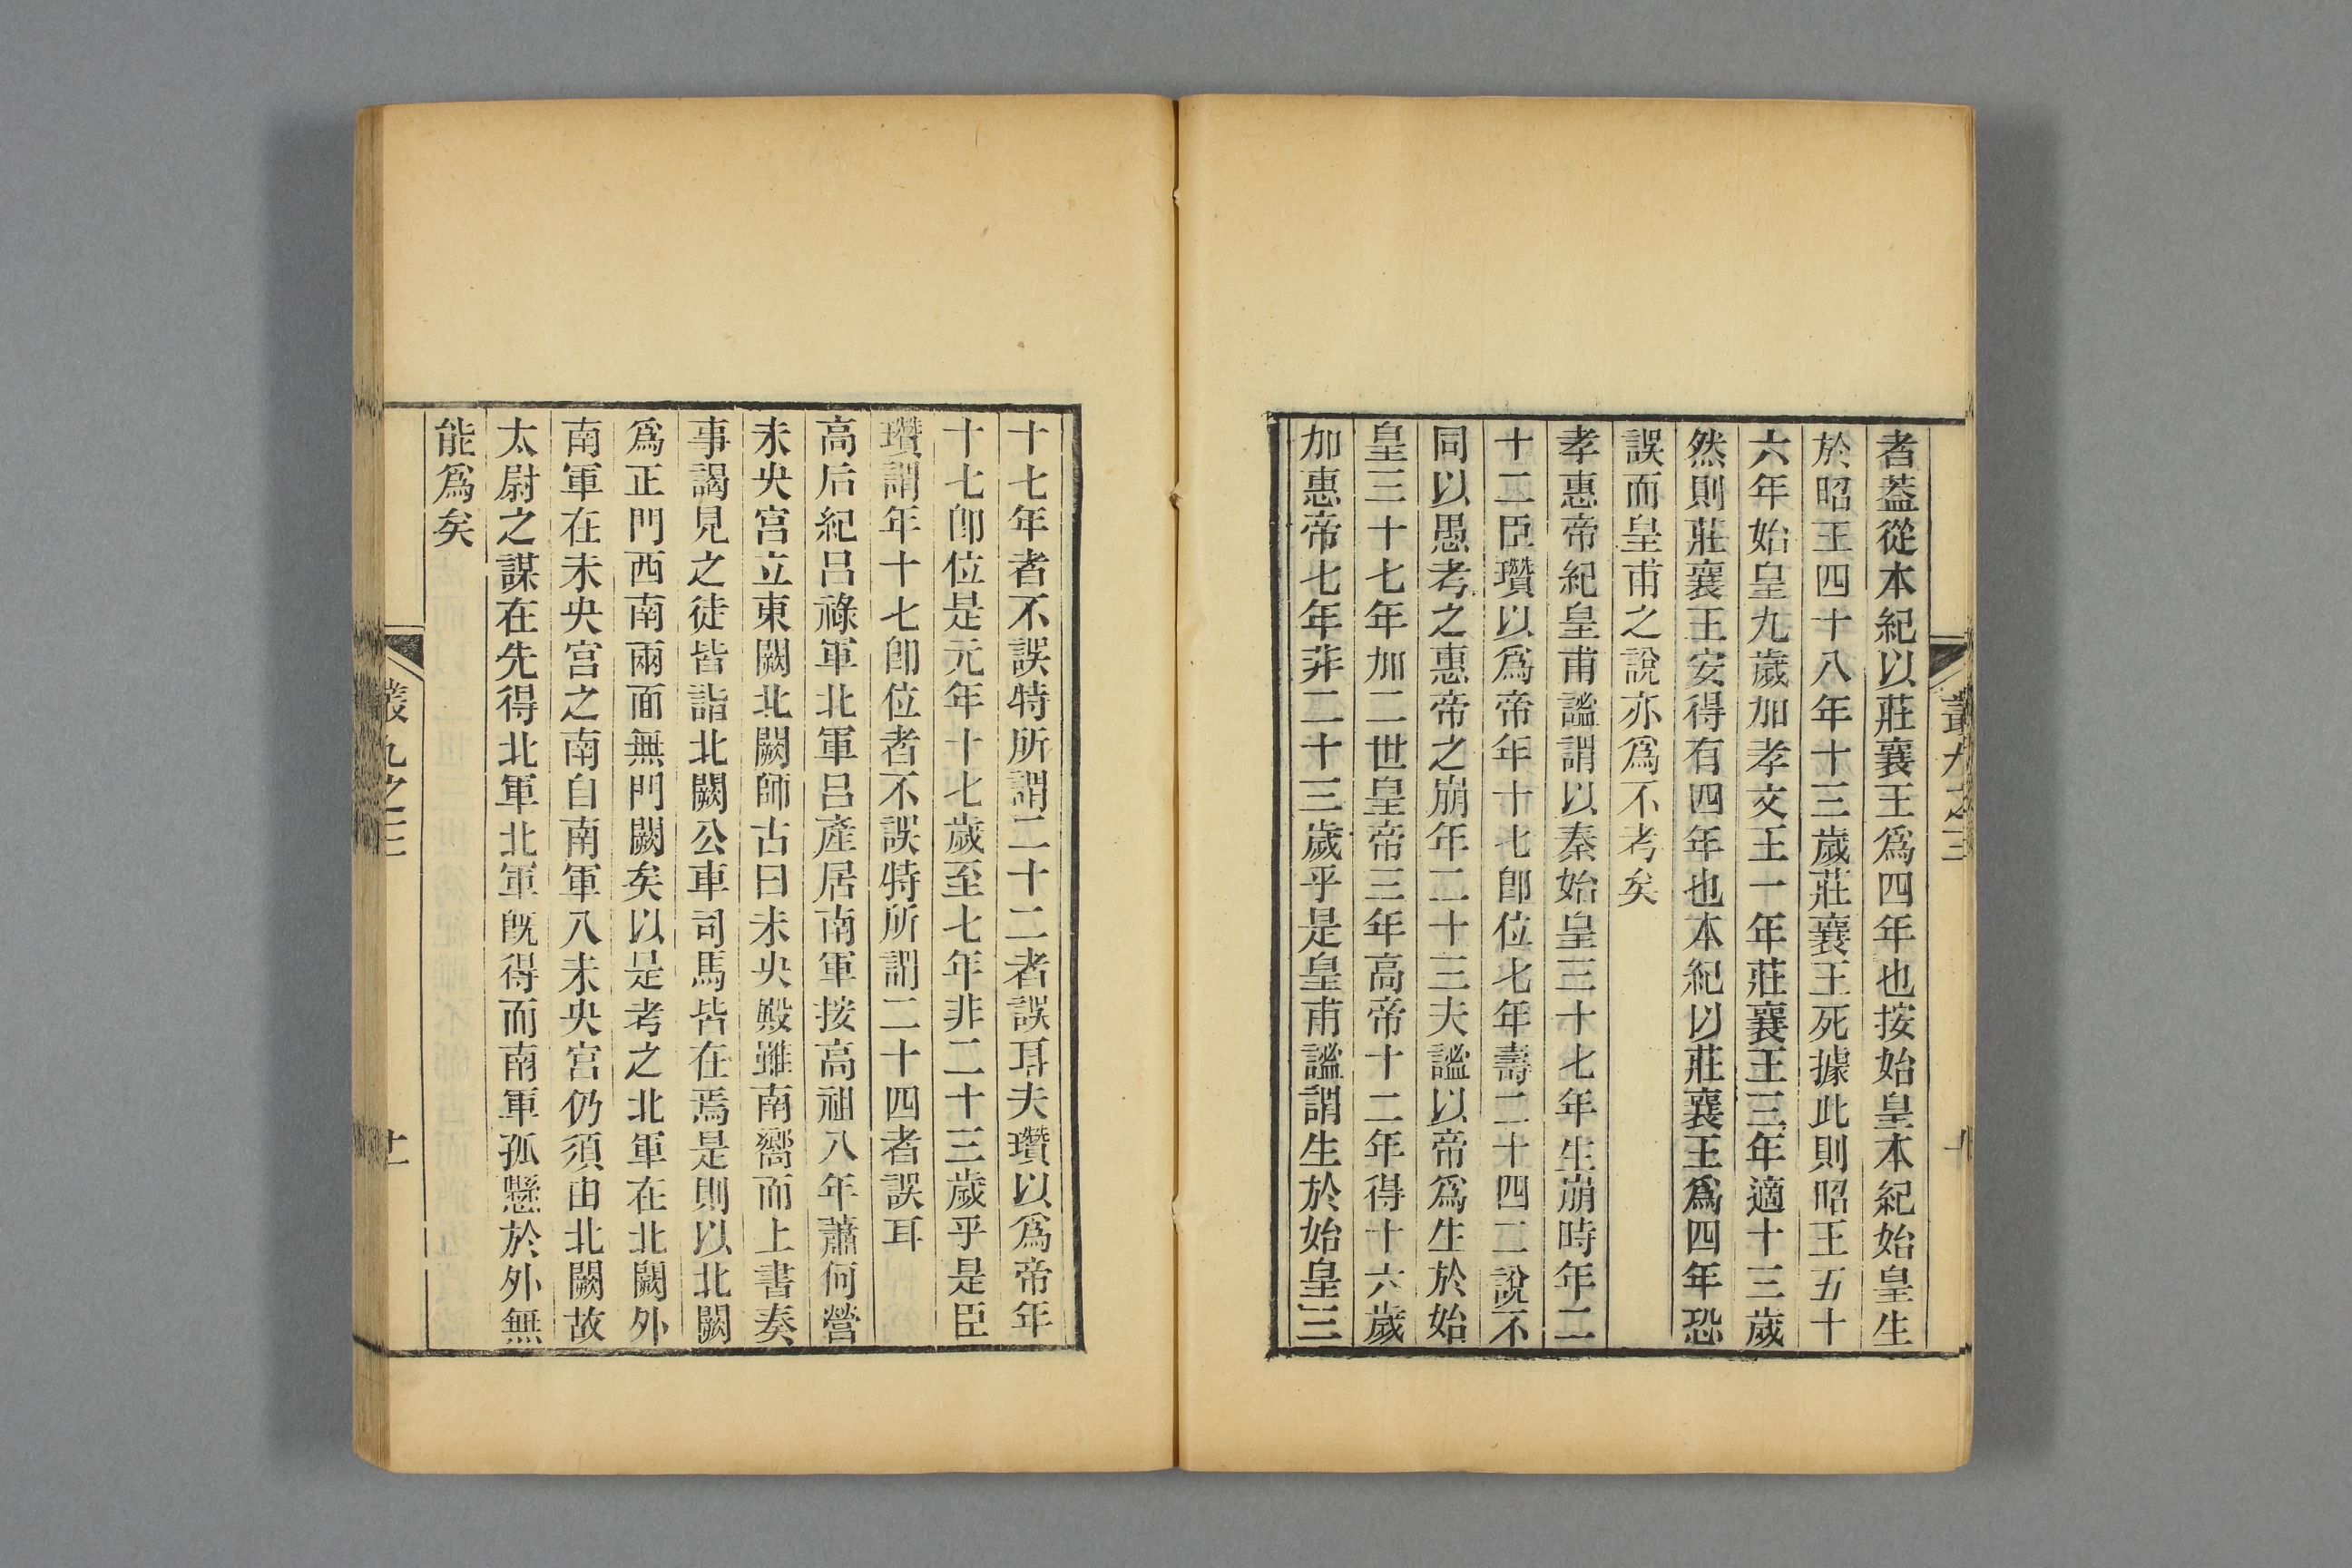 者葢從本紀以莊襄王爲四年也按始皇本紀始皇生
於昭王四十八年十三歲莊襄王死據此則昭王五十
六年始皇九歲加孝文王一年莊襄王三年適十三歲
然則莊襄王安得有四年也本紀以莊襄王爲四年恐
誤而皇甫之說亦爲不考矣
孝惠帝紀皇甫謐謂以秦始皇三十七年生崩時年二
十二臣瓚以爲帝年十七卽位七年壽二十四二說不
同以愚考之惠帝之崩年二十三夫謐以帝爲生於始
皇三十七年加二世皇帝三年高帝十二年得十六歲
加惠帝七年非二十三歲乎是皇甫謐謂生於始皇三
叢九之三
十七年者不誤特所謂二十二者誤耳夫瓚以爲帝年
十七卽位是元年十七歲至七年非二十三歲乎是臣
瓚謂年十七卽位者不誤特所謂二十四者誤耳
高后紀呂祿軍北軍呂產居南軍按高祖八年蕭何營
未央宮立東闕北闕師古曰未央殿雖南嚮而上書奏
事謁見之徒皆詣北闕公車司馬皆在焉是則以北闕
爲正門西南兩面無門闕矣以是考之北軍在北闕外
南軍在未央宮之南自南軍入未央宮仍須由北闕故
太尉之謀在先得北軍北軍旣得而南軍孤懸於外無
能爲矣
叢九之三